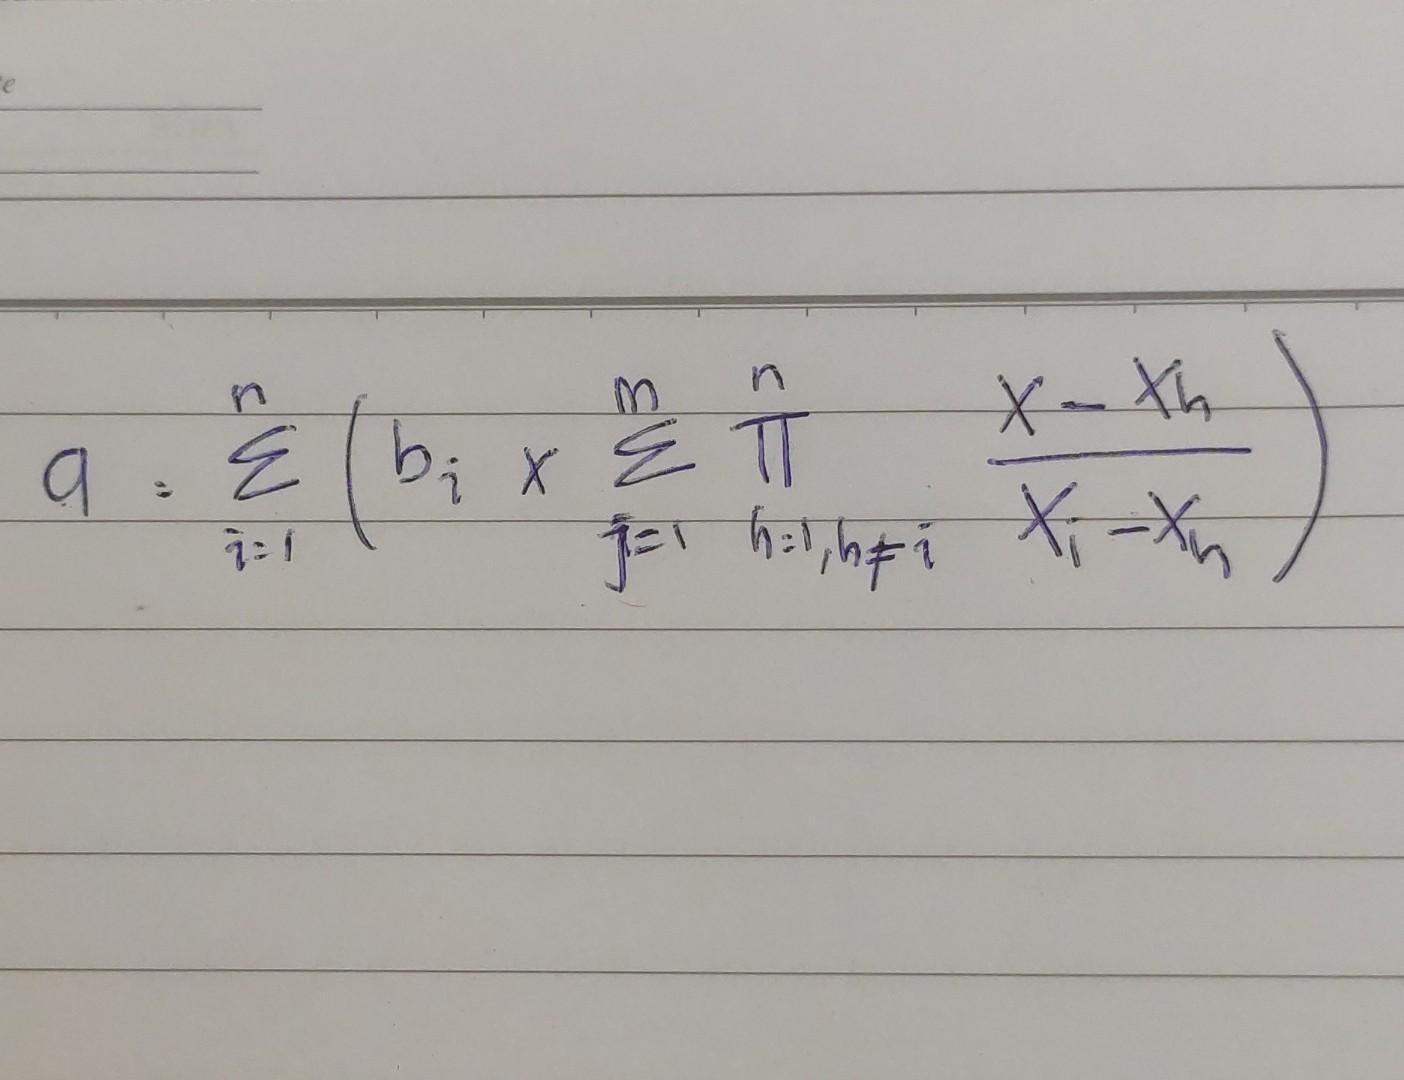 e
a = \sum_{i=1}^{n} \left( b_i \times \sum_{j=1}^{m} \prod_{h=1, h \neq i}^{n} \frac{x - x_h}{x_i - x_h} \right)